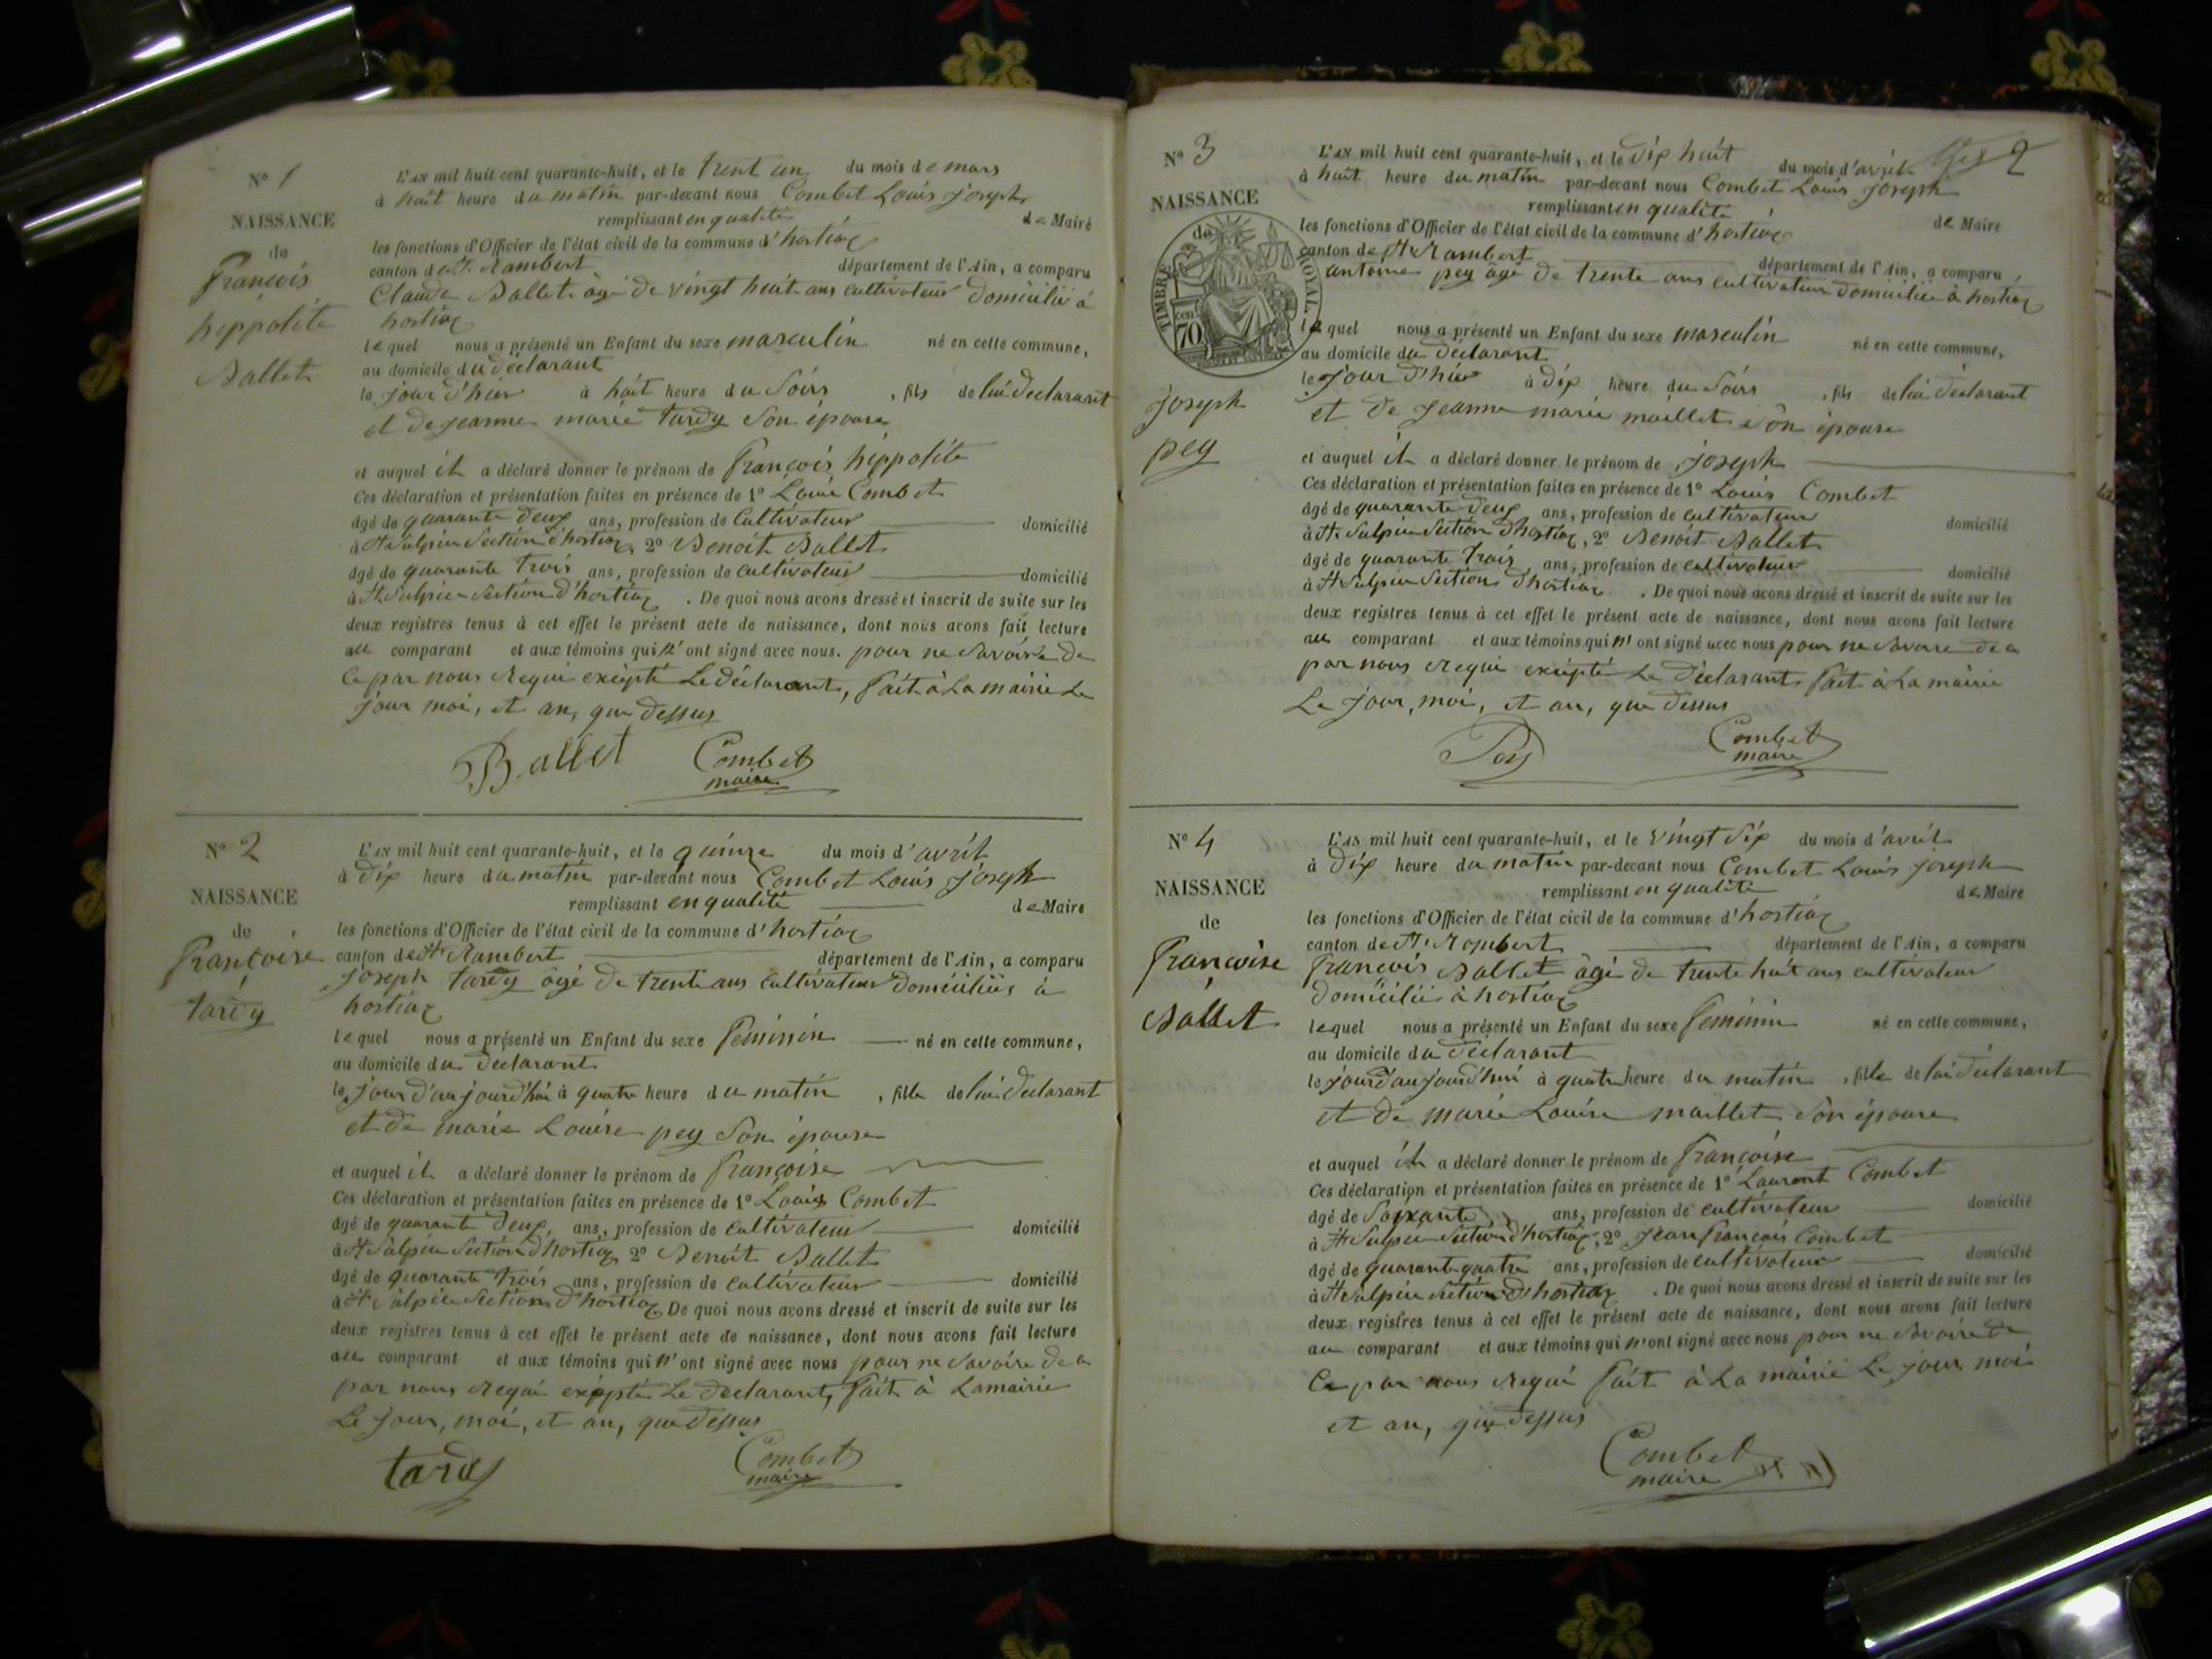 N° 1
NAISSANCE
de
François
hippolite
Ballet
L'AN mil huit cent quarante-huit, et le trent un du mois de mars
à huit heure du matin par-devant nous Combet Louis joseph
remplissant en qualité de Maire
les fonctions d'Officier de l'état civil de la commune d'hostiaz
canton de St Rambert département de l'Ain, a comparu
Claude Ballet âgé de vingt huit ans cultivateur domicilié à
hostiaz
lequel nous a présenté un Enfant du sexe masculin né en cette commune,
au domicile du déclarant
le jour d'hier à huit heure du soirs, fils de lui déclarant
et de jeanne marie tardy son épouse
et auquel il a déclaré donner le prénom de François hippolite
Ces déclaration et présentation faites en présence de 1° Louis Combet
âgé de quarante deux ans, profession de Cultivateur domicilié
à St Sulpice Section d'hostiaz, 2° Benoit Ballet
âgé de quarante trois ans, profession de cultivateur domicilié
à St Sulpice Section d'hostiaz. De quoi nous avons dressé et inscrit de suite sur les
deux registres tenus à cet effet le présent acte de naissance, dont nous avons fait lecture
au comparant et aux témoins qui n'ont signé avec nous. pour ne savoire de
ce par nous requi exèpté Le déclarant, fait à La mairie Le
jour moi, et an, que dessus
Ballet Combet
maire
N° 2
NAISSANCE
de
françoise
tardy
L'AN mil huit cent quarante-huit, et le quinze du mois d'avril
à dix heure du matin par-devant nous Combet Louis joseph
remplissant en qualité de Maire
les fonctions d'Officier de l'état civil de la commune d'hostiaz
canton de St Rambert département de l'Ain, a comparu
joseph tardy âgé de trente ans cultivateur domiciliés à
hostiaz
lequel nous a présenté un Enfant du sexe féminin né en cette commune,
au domicile du déclarant
le jour d'aujourd'hui à quatre heure du matin, fille de lui déclarant
et de marie Louise pey son épouse
et auquel il a déclaré donner le prénom de françoise
Ces déclaration et présentation faites en présence de 1° Louis Combet
âgé de quarante deux ans, profession de cultivateur domicilié
à St Sulpice Section d'hostiaz, 2° Benoit Ballet
âgé de quarante trois ans, profession de cultivateur domicilié
à St Sulpice Section d'hostiaz De quoi nous avons dressé et inscrit de suite sur les
deux registres tenus à cet effet le présent acte de naissance, dont nous avons fait lecture
au comparant et aux témoins qui n'ont signé avec nous pour ne savoire de ce
par nous requi exèpté Le déclarant, fait à Lamairie
Le jour, moi, et an, que dessus
tardy Combet
maire
2
N° 3
NAISSANCE
de
TIMBRE ROYAL
70 cen
joseph
pey
L'AN mil huit cent quarante-huit, et le dix huit du mois d'avril
à huit heure du matin par-devant nous Combet Louis joseph
remplissant en qualité de Maire
les fonctions d'Officier de l'état civil de la commune d'hostiaz
canton de St Rambert département de l'Ain, a comparu
antoine pey âgé de trente ans cultivateur domicilié à hostiaz
lequel nous a présenté un Enfant du sexe masculin né en cette commune,
au domicile du déclarant
le jour d'hier à dix heure du soirs, fils de lui déclarant
et de jeanne marie maillet son épouse
et auquel il a déclaré donner le prénom de joseph
Ces déclaration et présentation faites en présence de 1° Louis Combet
âgé de quarante deux ans, profession de cultivateur domicilié
à St Sulpice Section d'hostiaz, 2° Benoit Ballet
âgé de quarante trois ans, profession de cultivateur domicilié
à St Sulpice Section d'hostiaz. De quoi nous avons dressé et inscrit de suite sur les
deux registres tenus à cet effet le présent acte de naissance, dont nous avons fait lecture
au comparant et aux témoins qui n'ont signé avec nous pour ne savoire de ce
par nous requi exèpté Le déclarant fait à La mairie
Le jour, moi, et an, que dessus
Pey Combet
maire
N° 4
NAISSANCE
de
françoise
Ballet
L'AN mil huit cent quarante-huit, et le vingt six du mois d'avril
à dix heure du matin par-devant nous Combet Louis joseph
remplissant en qualité de Maire
les fonctions d'Officier de l'état civil de la commune d'hostiaz
canton de St Rambert département de l'Ain, a comparu
françois Ballet âgé de trente huit ans cultivateur
domicilié à hostiaz
lequel nous a présenté un Enfant du sexe féminin né en cette commune,
au domicile du déclarant
le jour d'aujourd'hui à quatre heure du matin, fille de lui déclarant
et de marie Louise maillet son épouse
et auquel il a déclaré donner le prénom de françoise
Ces déclaration et présentation faites en présence de 1° Laurent Combet
âgé de soixante ans, profession de cultivateur domicilié
à St Sulpice Section d'hostiaz, 2° jean françois Combet
âgé de quarante quatre ans, profession de cultivateur domicilié
à St Sulpice Section d'hostiaz. De quoi nous avons dressé et inscrit de suite sur les
deux registres tenus à cet effet le présent acte de naissance, dont nous avons fait lecture
au comparant et aux témoins qui n'ont signé avec nous pour ne savoire de
ce par nous requi fait à La mairie Le jour moi
et an, que dessus
Combet
maire